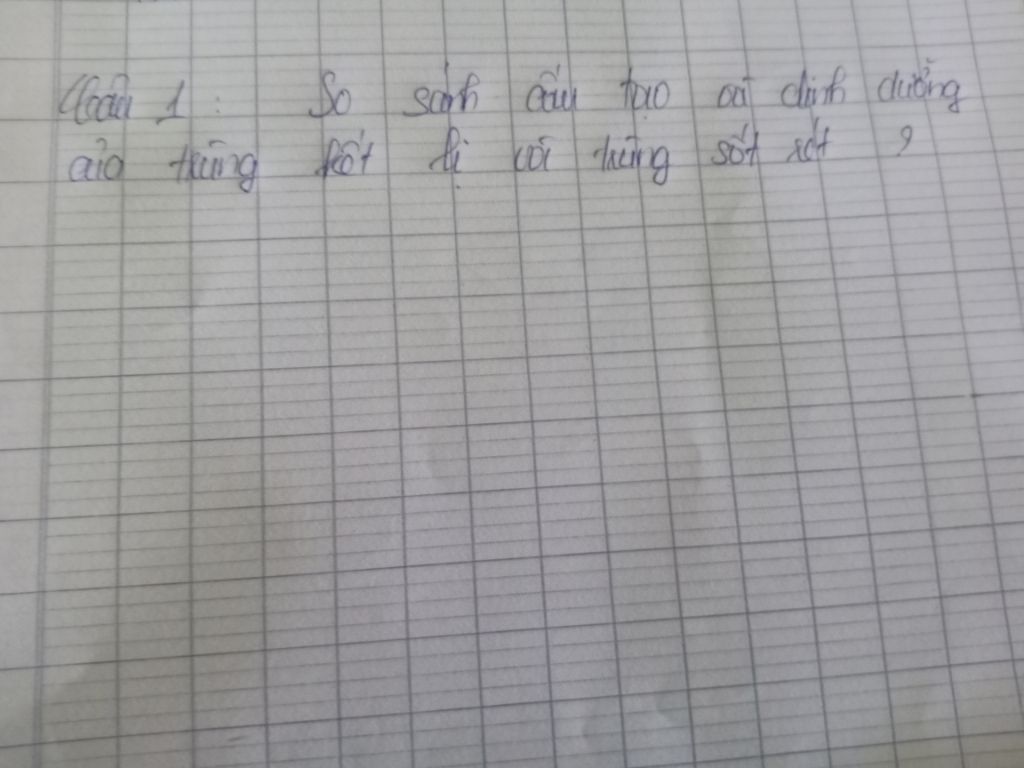 Câu 1 : So sánh cấu tạo và dinh dưỡng
của trùng kiết lị với trùng sốt rét ?